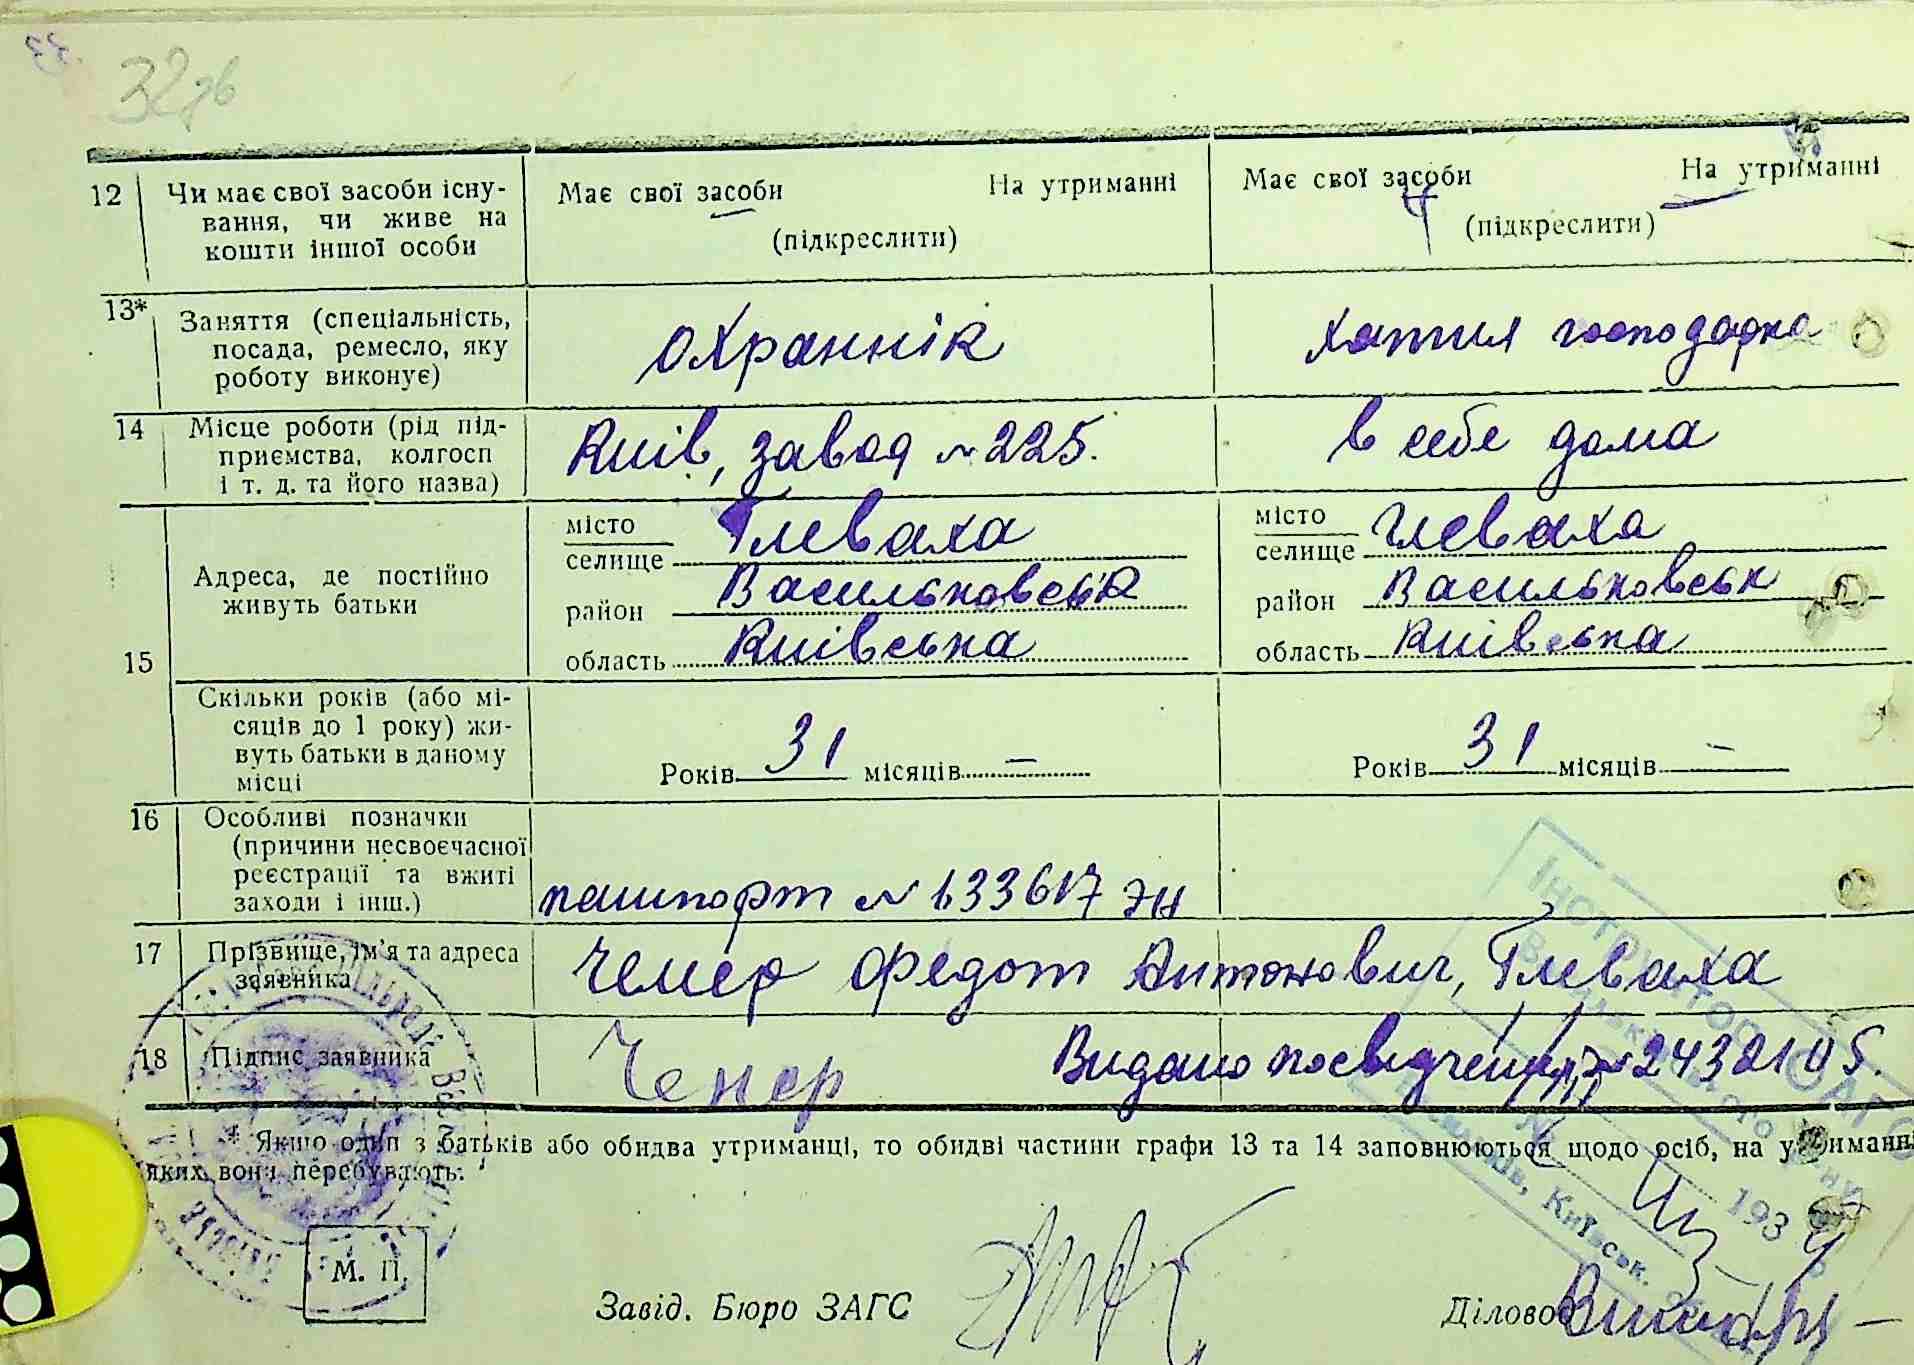 32 зв
12 Чи має свої засоби існу-
вання, чи живе на
кошти іншої особи
Має свої засоби На утриманні
(підкреслити)
Має свої засоби На утриманні
(підкреслити)
13* Заняття (спеціальність,
посада, ремесло, яку
роботу виконує)
охраннік
хатня господарка
14 Місце роботи (рід під-
приємства, колгосп
і т. д. та його назва)
Київ, завод № 225.
в себе дома
15 Адреса, де постійно
живуть батьки
місто
селище Глеваха
район Васильковськ
область Київська
місто
селище Глеваха
район Васильковськ
область Київська
Скільки років (або мі-
сяців до 1 року) жи-
вуть батьки в даному
місці
Років 31 місяців —
Років 31 місяців —
16 Особливі позначки
(причини несвоєчасної
реєстрації та вжиті
заходи і інш.)
пашпорт № 133617 ЭН
17 Прізвище, ім'я та адреса
заявника
Чемер Федот Антонович, Глеваха
18 Підпис заявника
Чемер
Видано посвідчення № 2432105.
* Якщо один з батьків або обидва утриманці, то обидві частини графи 13 та 14 заповнюються щодо осіб, на утриманні
яких вони перебувають.
М. П.
Завід. Бюро ЗАГС
Діловод
Інструктор ЗАГС
193
Київськ.